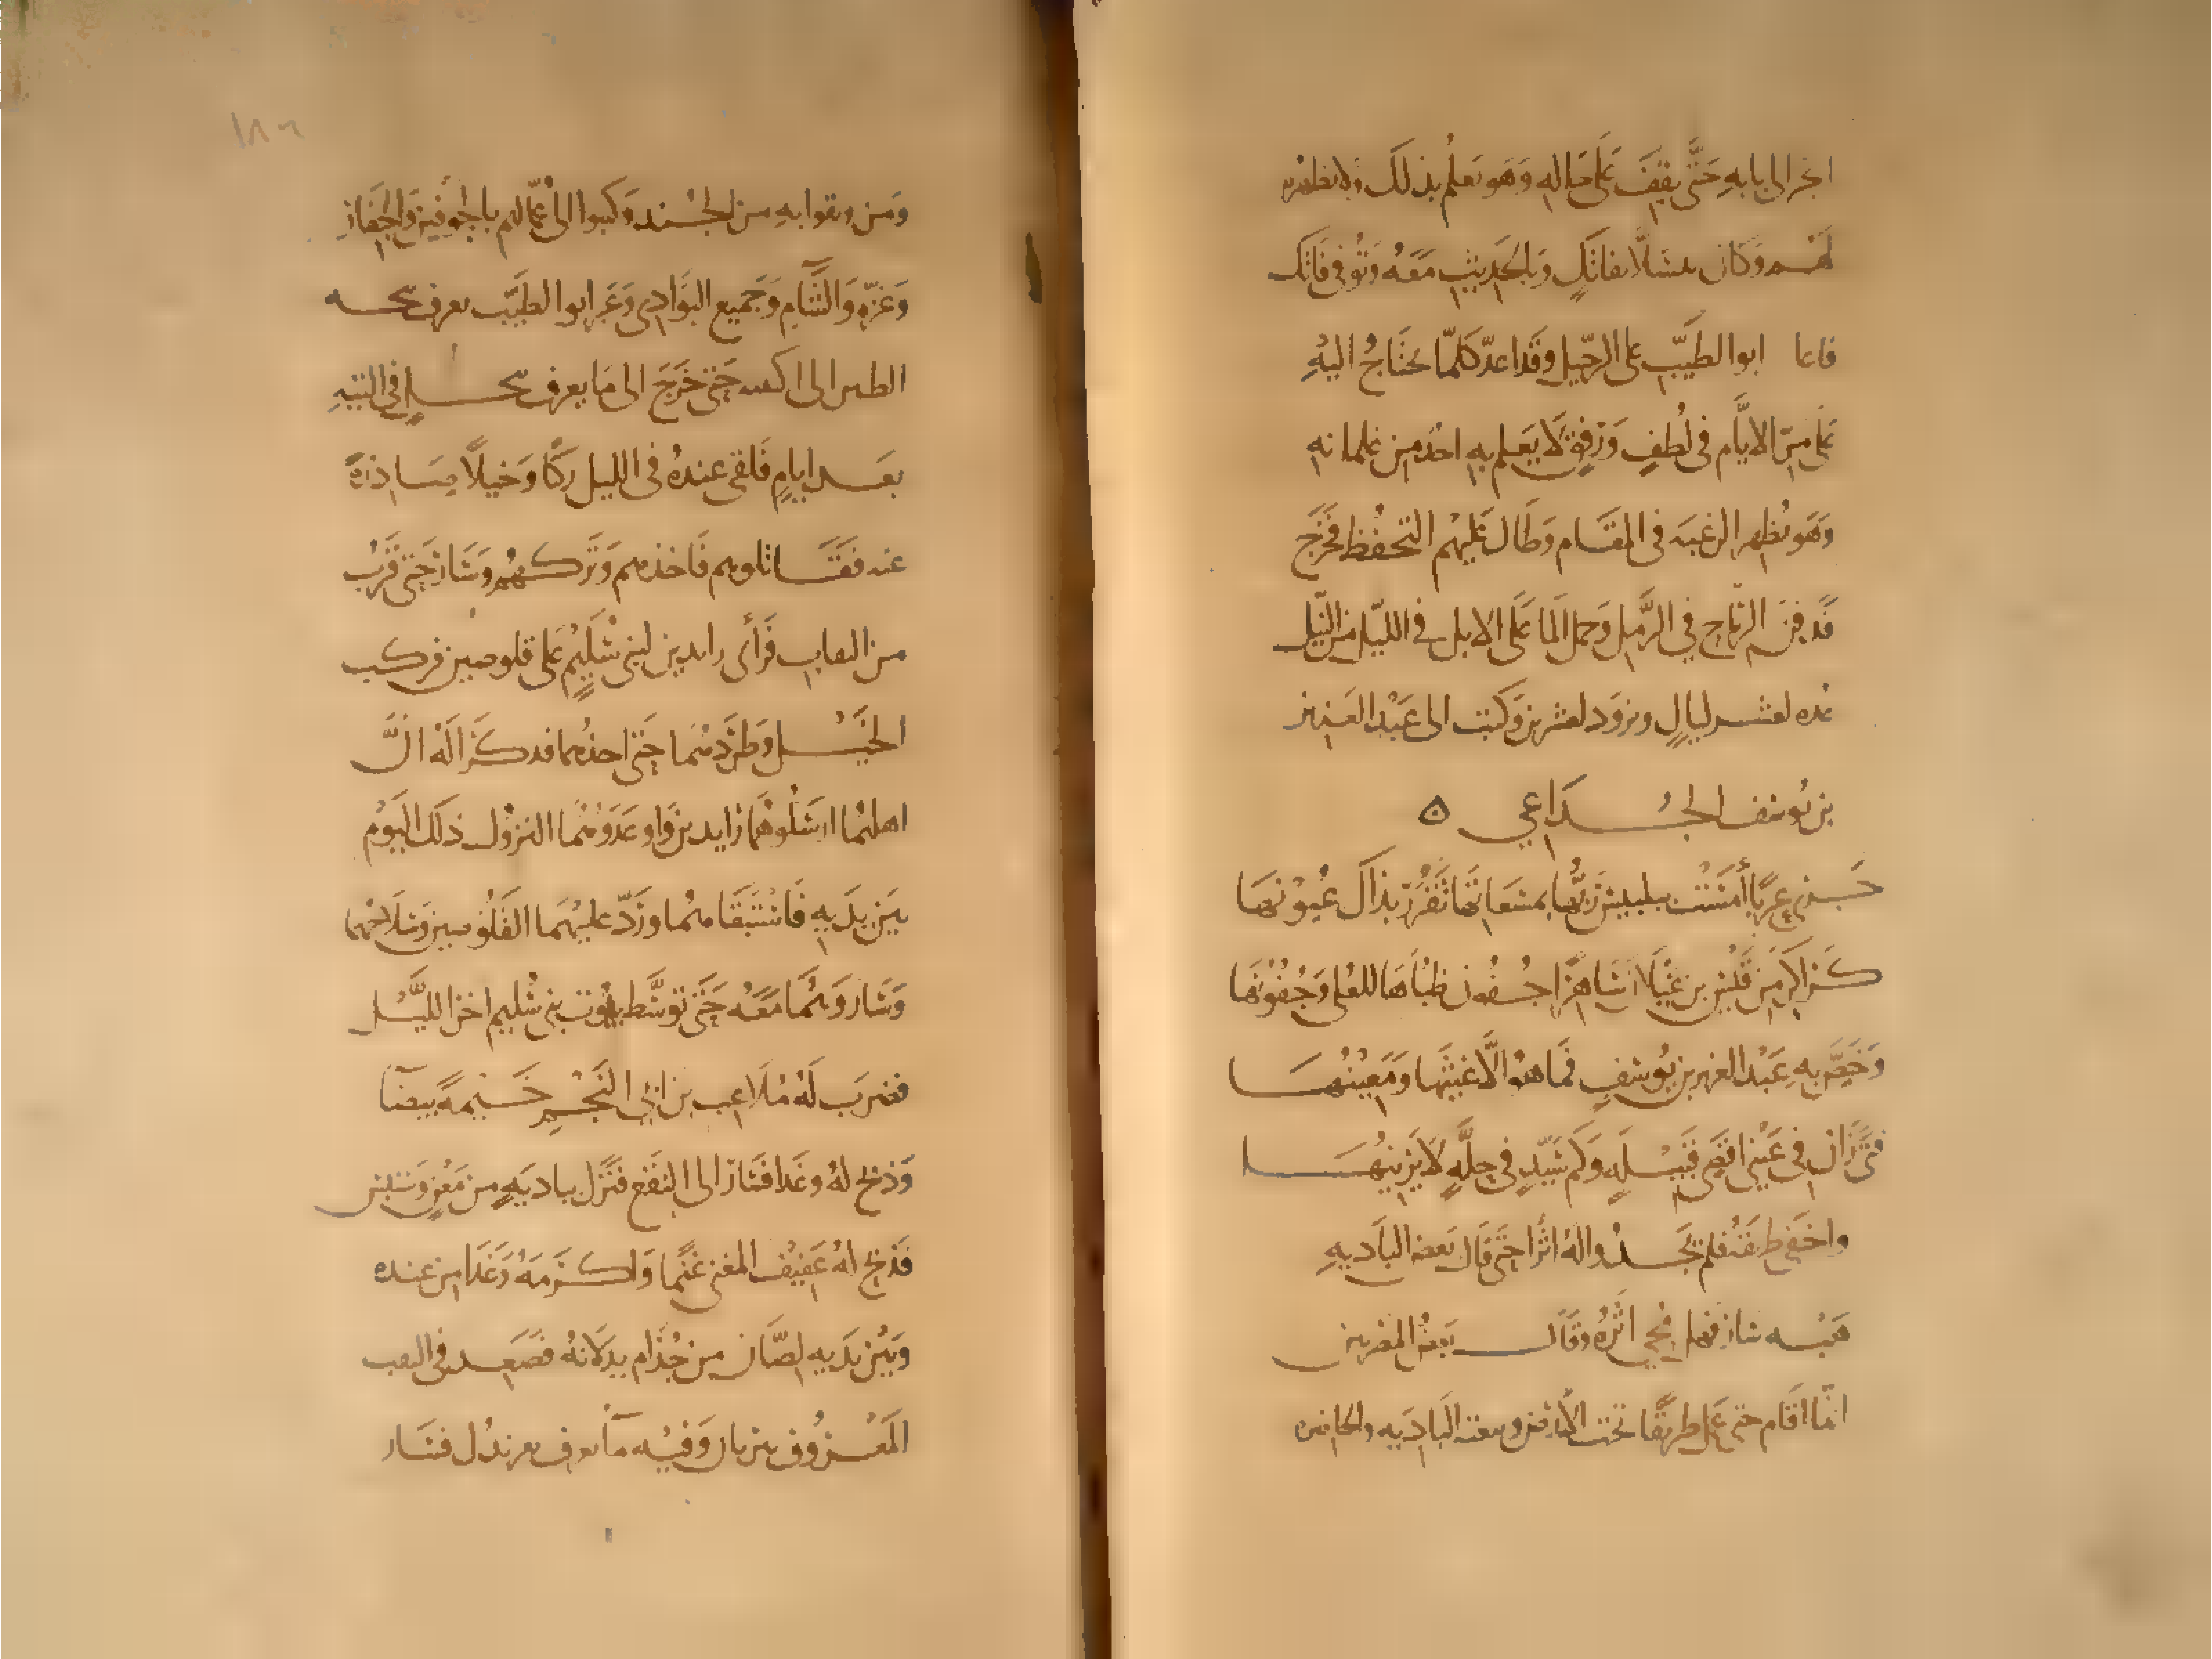 الخبر الى بابه حَتَّى يقِفَ عَلَى حَاله وَهُو يَعلمُ بذلكَ وَلا يظهره
لَهُم وَكان يتسَلَّا بفاتكٍ وَبالحَدِيثِ مَعَهُ وَتُوفى فَاتك
فاعا ابو الطيَّب على الرحِيل وَقَد اعدّ كلمّا يحتَاجُ اليْهِ
عَلَى مرّ الايَّام فى لُطفٍ وَرفقٍ لَا يَعلم به احدٌ من غلمانه
وَهُو يُظهر الرغبه فى المقَام وَطَال عَليهم التحفُّظ فخَرج
فدفنَ الرّماح في الرَّمل وَحمل المَا عَلى الابل فى الليّل من النّيل
عُده لعشر ليالٍ وتزود لعشرين وَكتب الى عَبْد العَزيز
بن يُوسف الخُزَاعي ه
جَزى عربًا أَمسَت ببلبيسَ رَبُّها بمسعَاتها تَقْرَرْ بذَاك عُيُونهَا
كَرَاكِرَ من قَيْس بن عَيْلَانَ سَاهرًا جُفُون ظُبَاهَا للعُلى وَجُفُونهَا
وَخصَّ به عَبْد العزيز بن يُوسفٍ فَمَا هوَ الَّا غيثهَا وَمَعِينُهَا
فتًى زَان فى عَيْنى اقصَى قَبيْلهِ وَكَم سَيّدٍ فى حِلَّهٍ لَا يَزينُهَا
واخفى طرقَهُ فلم يَجدُوا لهُ اثرًا حَتَّى قَال بَعض البَاديهِ
هَبْه سَار فهل مُحى اثَرُهُ وَقَال بَعضُ المصريين
انمّا اقَام حتى عَمل طريقًا تحت الارض وتبعته البَاديَه والحاضره
١٨٦
وَمَن وثقوا به من الجُند وَكتبوا الى عُمّالهم بالجَوفَين وَالجِفَار
وَغزّه وَالشَّام وَجَميع البَوَادى وَعَبر ابو الطيّب بعرف بنجه
الطير الى اكسه حَتى خَرجَ الى مَا يعرف بنخل فى التيهِ
بعَد ايامٍ فَلقى عندهُ فى الليل ركبًا وَخيلًا صَادرَةً
عنه فقَاتلوهم فَاخذهم وَتركهُم وسَار حَتى قَرُب
من النقاب فَرَأى رايدين لبنى سُليْمٍ عَلى قلوصين فركب
الخَيْل وَطَردهُما حَتى اخذهُما فذكرَا لَهُ انَّ
اهلهُمَا ارسَلُوهُمَا رَايدين وَاوعَدَوهُمَا النزُول ذلك اليَوْم
بَين يدَيه فَاسْتَبقَاهُما ورَدّ عليهمَا القَلُوصين وَسلَاحَهما
وَسَار وَهُمَا مَعَه حَتى توسَّط بيُوت بنى سُليم اخر الليَّل
فضرَب لَه مُلَاعِب بن ابي النَجْم خَيْمَةً بيضَآ
وَذبح لهُ وغَدا فسَارَ الى النقع فَنَزل ببادِيَهٍ من مَعْنٍ وَسنبس
فذبح لهُ عَفيفُ المعنى غنَمًا وَاكرَمَهُ وَغَدَا من عنده
وَبَيْن يدَيه لصَّان من جُذَام يدلَانهُ فصَعد فى النقب
المَعْرُوف بتربان وَفيْه مآ يعرف بغرندل فسَار